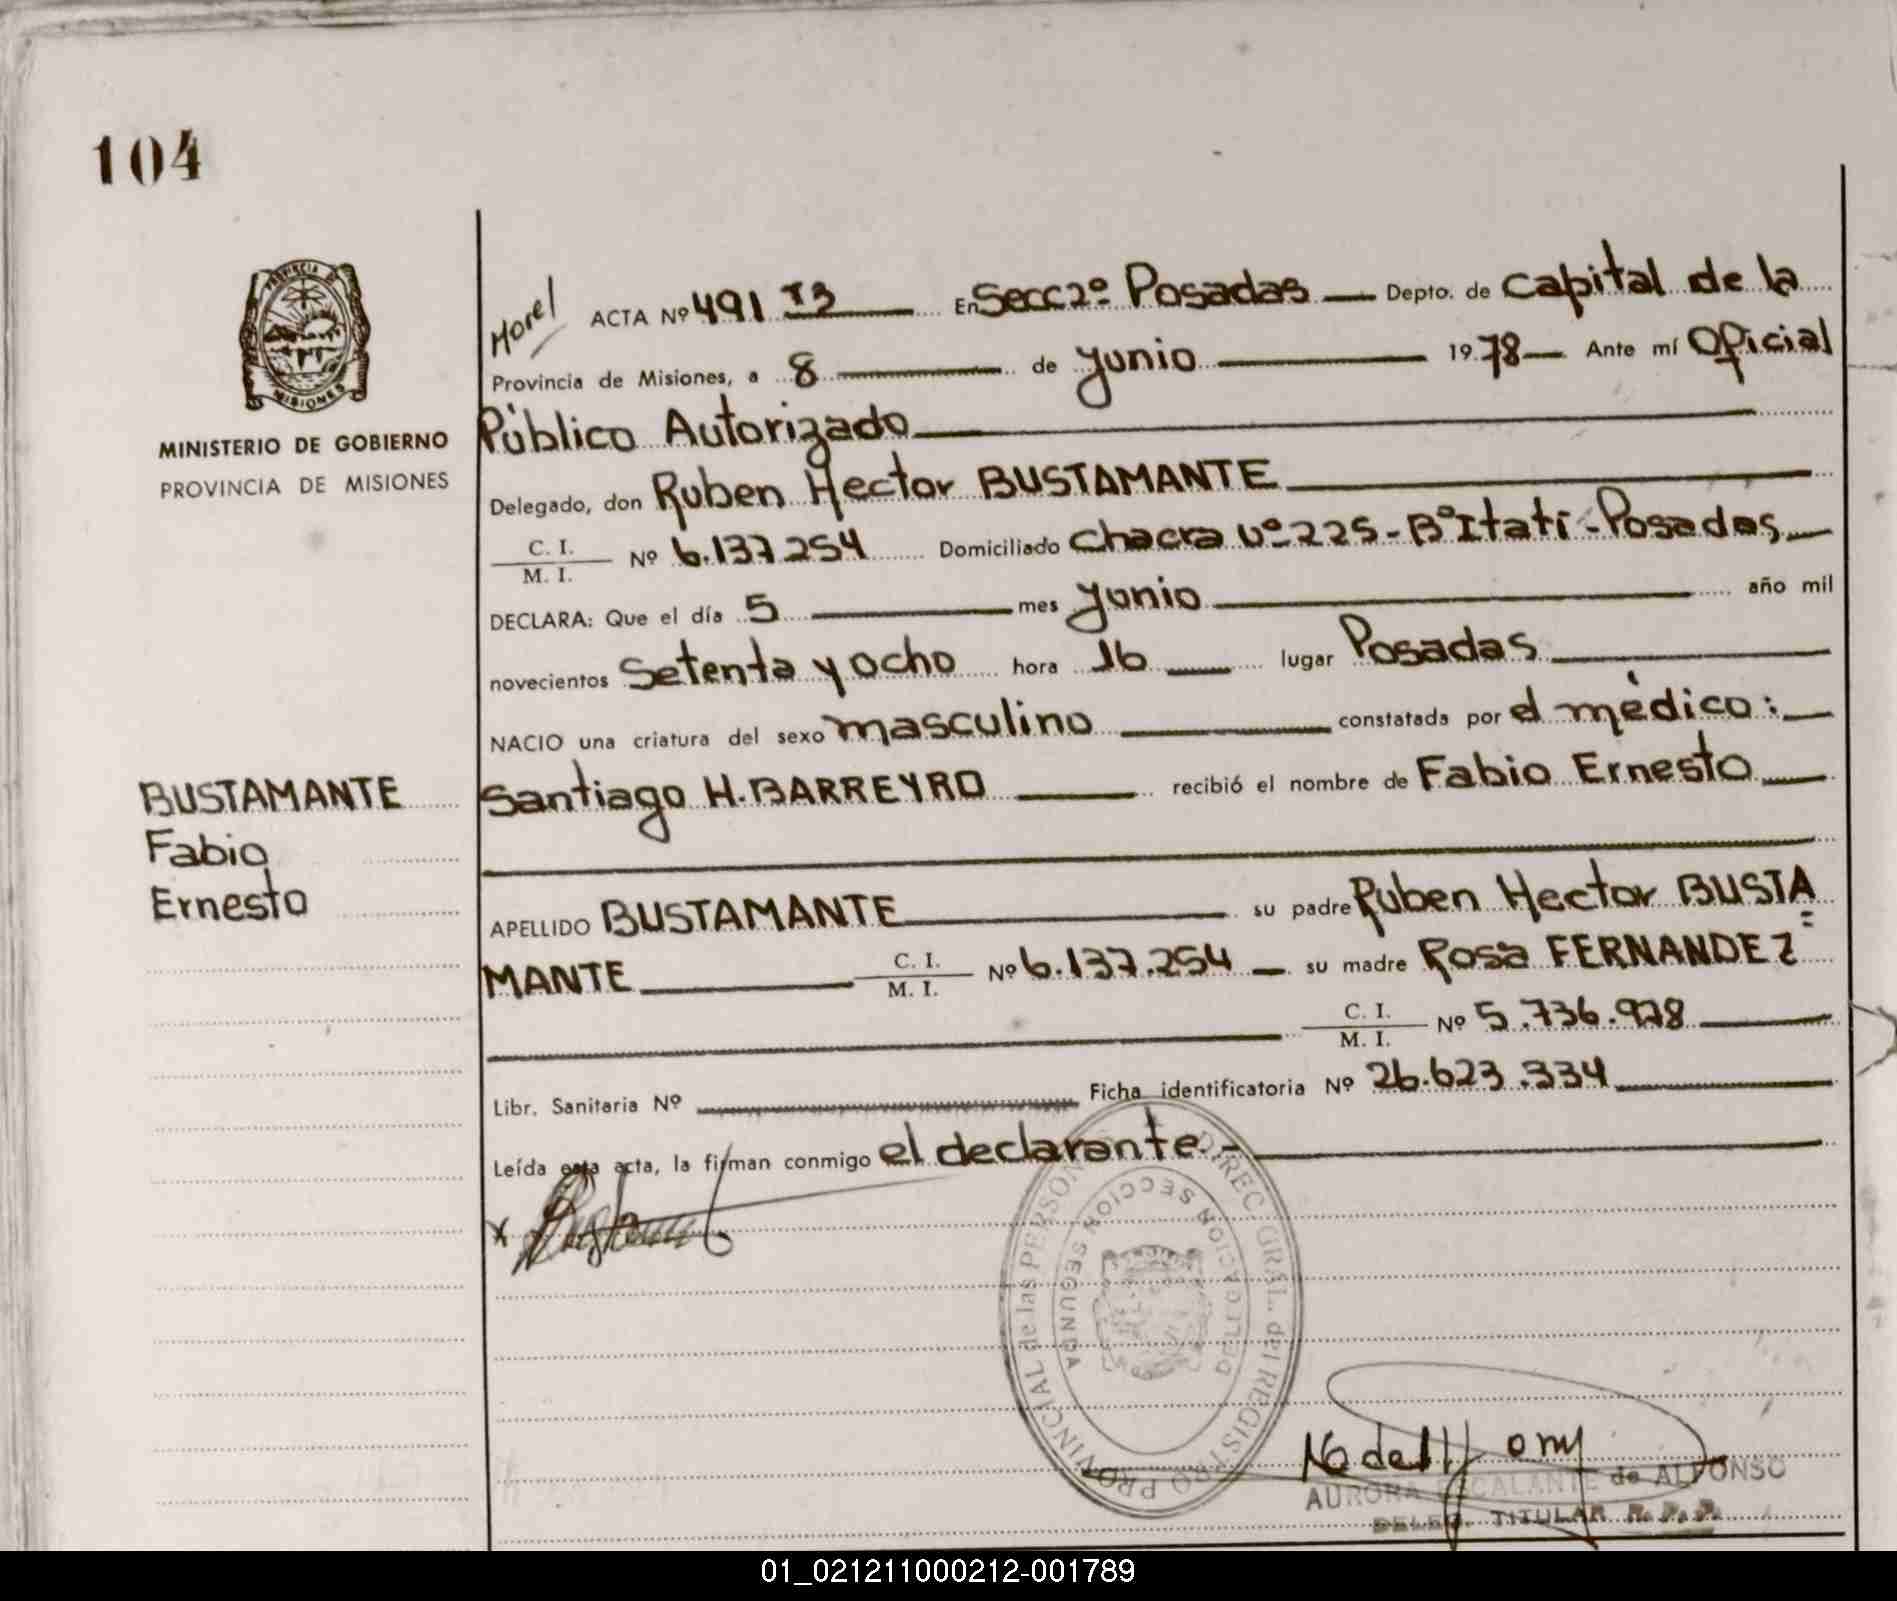 104
PROVINCIA DE
MISIONES
MINISTERIO DE GOBIERNO
PROVINCIA DE MISIONES
BUSTAMANTE
Fabio
Ernesto
Morel
ACTA Nº 491 T3 En Secc 2º Posadas Depto. de Capital de la
Provincia de Misiones, a 8 de Junio 1978 Ante mí Oficial
Público Autorizado
Delegado, don Ruben Hector BUSTAMANTE
C. I.
M. I. Nº 6.137.254 Domiciliado Chacra Nº 225 - Bº Itatí - Posadas
DECLARA: Que el día 5 mes Junio año mil
novecientos Setenta y ocho hora 16 lugar Posadas
NACIO una criatura del sexo masculino constatada por el médico:
Santiago H. BARREYRO recibió el nombre de Fabio Ernesto
APELLIDO BUSTAMANTE su padre Ruben Hector BUSTA=
MANTE C. I.
M. I. Nº 6.137.254 su madre Rosa FERNANDEZ
C. I.
M. I. Nº 5.736.978
Libr. Sanitaria Nº Ficha identificatoria Nº 26.623.334
Leída esta acta, la firman conmigo el declarante.-
x
DIREC. GRAL. del REGISTRO PROVINCIAL de las PERSONAS
DELEGACION SECCION SEGUNDA
AURORA ESCALANTE de ALFONSO
DELEG. TITULAR R. P. P.
01_021211000212-001789